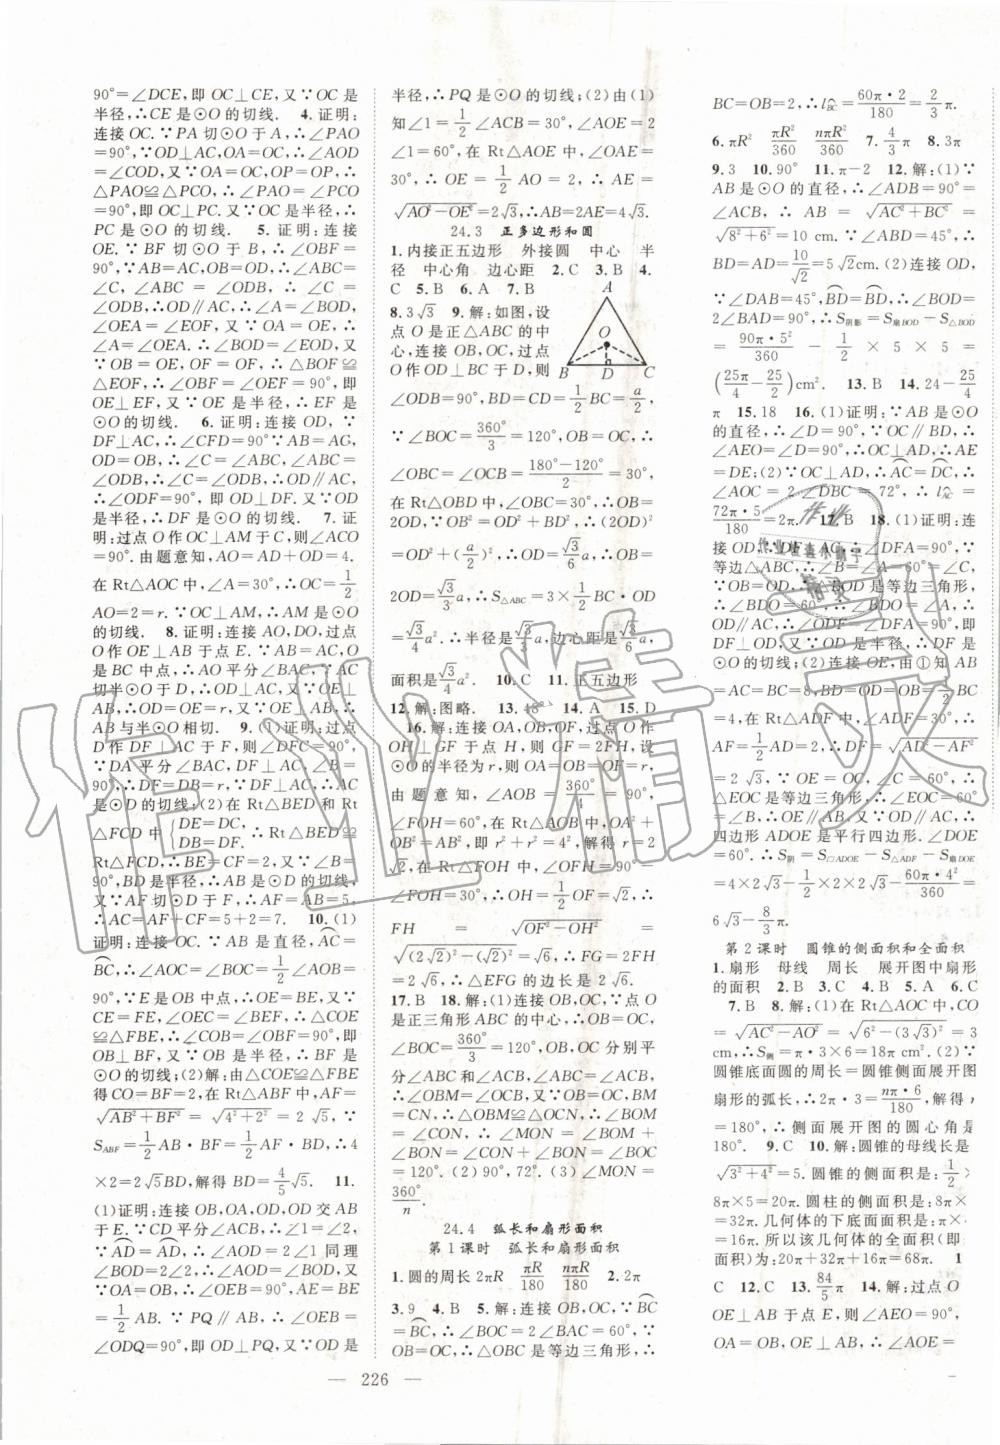 90°=∠DCE,即 OC⊥CE,又∵OC 是
半径,∴CE 是⊙O 的切线. 4. 证明:
连接 OC.∵PA 切⊙O 于 A,∴∠PAO
=90°,∵OD⊥AC,OA=OC,∴∠AOD
=∠COD,又∵OA=OC,OP=OP,∴
△PAO≌△PCO,∴∠PCO=∠PAO
=90°,即 OC⊥PC. 又∵OC 是半径,∴
PC 是⊙O 的切线. 5. 证明:连接
OE.∵BF 切⊙O 于 B,∴∠OBF=
90°.∵AB=AC,OB=OD,∴∠ABC=
∠C,∠ABC=∠ODB,∴∠C=
∠ODB,∴OD∥AC,∴∠A=∠BOD,
∠OEA=∠EOF,又∵OA=OE,∴
∠A=∠OEA,∴∠BOF=∠EOF,又
∵OB=OE,OF=OF,∴△BOF≌
△EOF,∴∠OBF=∠OEF=90°,即
OE⊥EF,又∵OE 是半径,∴EF 是
⊙O 的切线. 6. 证明:连接 OD,∵
DF⊥AC,∴∠CFD=90°∵AB=AG,
OD=OB,∴∠C=∠ABC,∠ABC=
∠ODB,∴∠C=∠ODB,∴OD∥AC,
∴∠ODF=90°,即 OD⊥DF. 又∵OD
是半径,∴DF 是⊙O 的切线. 7. 证
明:过点 O 作 OC⊥AM 于点 C,则∠ACO
=90°,由题意知,∠A=30°,OA=4,
在 Rt△AOC 中,∠A=30°,∴OC=1/2
AO=2=r.又∵OC⊥AM,∴AM 是⊙O
的切线. 8. 证明:连接 AO,DO,过点
O 作 OE⊥AB 于点 E.∵AB=AC,O
是 BC 中点,∴AO 平分∠BAC.∵AC
切半⊙O 于 D,∴OD⊥AC,又∵OE⊥
AB,∴OE=OD,又∵OE⊥AB,∴
AB 与半⊙O 相切. 9. (1)证明:过点
D 作 DF⊥AC 于 F,则∠DFC=90°,
∵DA 平分∠BAC,DF⊥AC,∠ABC=
90°,∴DB=DF,又∵DB 是半径,∴AC
是⊙D 的切线;(2)在 Rt△BED 和 Rt
△FCD 中 {DE=DC, DB=DF. ∴Rt△BED≌
Rt△FCD,∴BE=CF=2.∵∠ABC=90°,
BD 是半径,∴AB 是⊙D 的切线,
又∵AF 切⊙D 于 F,∴AF=AB=5,
∴AC=AF+CF=5+2=7. 10. (1)
证明:连接 OA,OC,OE,∵AC=
BC,∴∠AOC=∠BOC=1/2∠AOB
=90°.∵E 是 OB 中点,∴OE=BE,又∵
CE=FE,∠OEC=∠BEF,∴△COE
≌△FBE,∴∠OBF=∠COB=90°,即
OB⊥BF,又∵OB 是半径,∴BF 是
⊙O 的切线;(2)解:由△COE≌△FBE
得 CO=BF=2,在 Rt△ABF 中,AF=
√(AB²+BF²)=√(4²+2²)=2√5,∵
S_ABF=1/2AB·BF=1/2AF·BD,∴4
×2=2√5BD,解得 BD=4/5√5. 11.
(1)证明:连接 OA,OD,OD 交 AB
于 E.∵CD 平分∠ACB,∴∠1=∠2,
∵AD=AD,∴∠AOD=2∠1 同理
∠BOD=2∠2,∴∠AOD=∠BOD,又
∵OA=OB,∴∠OEB=90°,AE=BE=
1/2AB. 又∵PQ∥AB,∴∠OEB=
∠ODQ=90°,即 OD⊥PQ,又∵OD 是
半径,∴PQ 是⊙O 的切线;(2)由(1)
知∠1=1/2∠ACB=30°,∠AOE=2
∠1=60°,在 Rt△AOE 中,∠OAE=
30°,∴OE=1/2AO=2,∴AE=
√(AO²−OE²)=2√3,∴AB=2AE=4√3.
24.3 正多边形和圆
1. 内接正五边形 外接圆 中心 半
径 中心角 边心距 2. C 3. B 4.
C 5. B 6. A 7. B
8. 3√3 9. 解:如图,设
点 O 是正△ABC 的中
心,连接 OB,OC,过点
O 作 OD⊥BC 于 D,则
A
O
B D C
∠ODB=90°,BD=CD=BC/2=a/2,
∵∠BOC=360°/3=120°,OB=OC,∴
∠OBC=∠OCB=(180°−120°)/2=30°,
在 Rt△OBD 中,∠OBC=30°,∴OB=
2OD,∵OB²=OD²+BD²,∴(2OD)²
=OD²+(a/2)²,∴OD=√3/6a,∴OB=
2OD=√3/3a,∴S△ABC=3×1/2BC·OD
=√3/4a².∴半径是√3/3a,边心距是√3/6a,
面积是√3/4a². 10. C 11. 正五边形
12. 解:图略. 13. 18° 14. A 15. D
16. 解:连接 OA,OB,OF,过点 O 作
OH⊥GF 于点 H,则 GF=2FH,设
⊙O 的半径为 r,则 OA=OB=OF=r,
由题意知,∠AOB=360°/4=90°,
∠FOH=60°,在 Rt△AOB 中,OA²+
OB²=AB²,即 r²+r²=4²,解得 r=
2√2,在 Rt△OFH 中,∠OFH=90°−
∠FOH=30°,∴OH=1/2OF=√2,∴
FH=√(OF²−OH²)=
√((2√2)²−(√2)²)=√6,∴FG=2FH
=2√6,∴△EFG 的边长是 2√6.
17. B 18. 解:(1)连接 OB,OC,∵点 O
是正三角形 ABC 的中心,∴OB=OC,
∠BOC=360°/3=120°,OB,OC 分别平
分∠ABC 和∠ACB,∠ABC=∠ACB,
∴∠OBC=∠OCN=∠OBM,又∵BM
=CN,∴△OBM≌△OCN,∴∠BOM
=∠CON,∴∠MON=∠BOM+
∠BON=∠CON+∠BON=∠BOC
=120°. (2)90°,72°. (3)∠MON=
360°/n.
24.4 弧长和扇形面积
第 1 课时 弧长和扇形面积
1. 圆的周长 2πR πR/180 nπR/180 2. 2π
3. 9 4. B 5. 解:连接 OB,OC,∵BC
=BC,∴∠BOC=2∠A=60°,又∵
OB=OC,∴△OBC 是等边三角形,∴
BC=OB=2,∴l_BC=60π·2/180=2/3π.
6. πR² πR²/360 nπR²/360 7. 4/3π 8. 3π
9. 3 10. 90° 11. π−2 12. 解:(1)∵
AB 是⊙O 的直径,∴∠ADB=90°=
∠ACB,∴AB=√(AC²+BC²)=
√(8²+6²)=10 cm.∵∠ABD=45°,∴
BD=AD=10/√2=5√2cm.(2)连接 OD,
∵∠DAB=45°,BD=BD,∴∠BOD=
2∠BAD=90°,∴S阴影=S扇BOD−S△BOD
=90π·5²/360−1/2×5×5=
(25π/4−25/2)cm². 13. B 14. 24−25/4
π 15. 18 16. (1)证明:∵AB 是⊙O
的直径,∴∠D=90°,∵OC∥BD,∴
∠AEO=∠D=90°,∴OC⊥AD,∴AE=
DE;(2)∵OC⊥AD,∴AC=DC,∴
72π·5/180=2π. 17. B 18. (1)证明:连
接 OD,∵DF⊥AC,∴∠DFA=90°,∵
等边△ABC,∴∠A=∠B=∠C=60°,
∵OB=OD,∴△OBD 是等边三角形,
∴∠BDO=60°,∴∠BDO=∠A,∴
OD∥AC,∴∠ODF=∠DFA=90°,∴
DF 是⊙O 的切线;(2)连接 OE,由①知
AB=AC=BC=8,BD=OB=4,∴AD
=4,在 Rt△ADF 中,∠A=60°,∴
AF=1/2AD=2,∴DF=√(AD²−AF²)
=2√3,∵OE=OC,∠C=60°,∴
△EOC 是等边三角形,∴∠COE=60°
=∠B,∴OE∥AB,又∵OD∥AC,∴
四边形 ADOE 是平行四边形.∠DOE
=60°.∴S阴=S▱ADOE−S△ADF−S扇DOE
=4×2√3−1/2×2×2√3−60π·4²/360=
6√3−8/3π.
第 2 课时 圆锥的侧面积和全面积
1. 扇形 母线 周长 展开图中扇形
的面积 2. B 3. C 4. B 5. A 6. C
7. B 8. 解:(1)在 Rt△AOC 中,CO
=√(AC²−AO²)=√(6²−(3√3)²)=3
cm,∴S侧=π·3×6=18π cm².(2)∵
圆锥底面圆的周长=圆锥侧面展开图
扇形的弧长,∴2π·3=nπ·6/180,解得 n
=180°,∴侧面展开图的圆心角是
180°. 9. C 10. 解:圆锥的母线长是
√(3²+4²)=5. 圆锥的侧面积是:1/2×
8π×5=20π. 圆柱的侧面积是:8π×4
=32π.几何体的下底面面积是:π×4²
=16π.所以该几何体的全面积(即表
面积)为:20π+32π+16π=68π.
C 12. C 13. 84/5π 14. 解:过点 O 作
OE⊥AB 于点 E,则∠AEO=90°,
OA=OB,OE⊥AB,∴∠AOE=
— 226 —